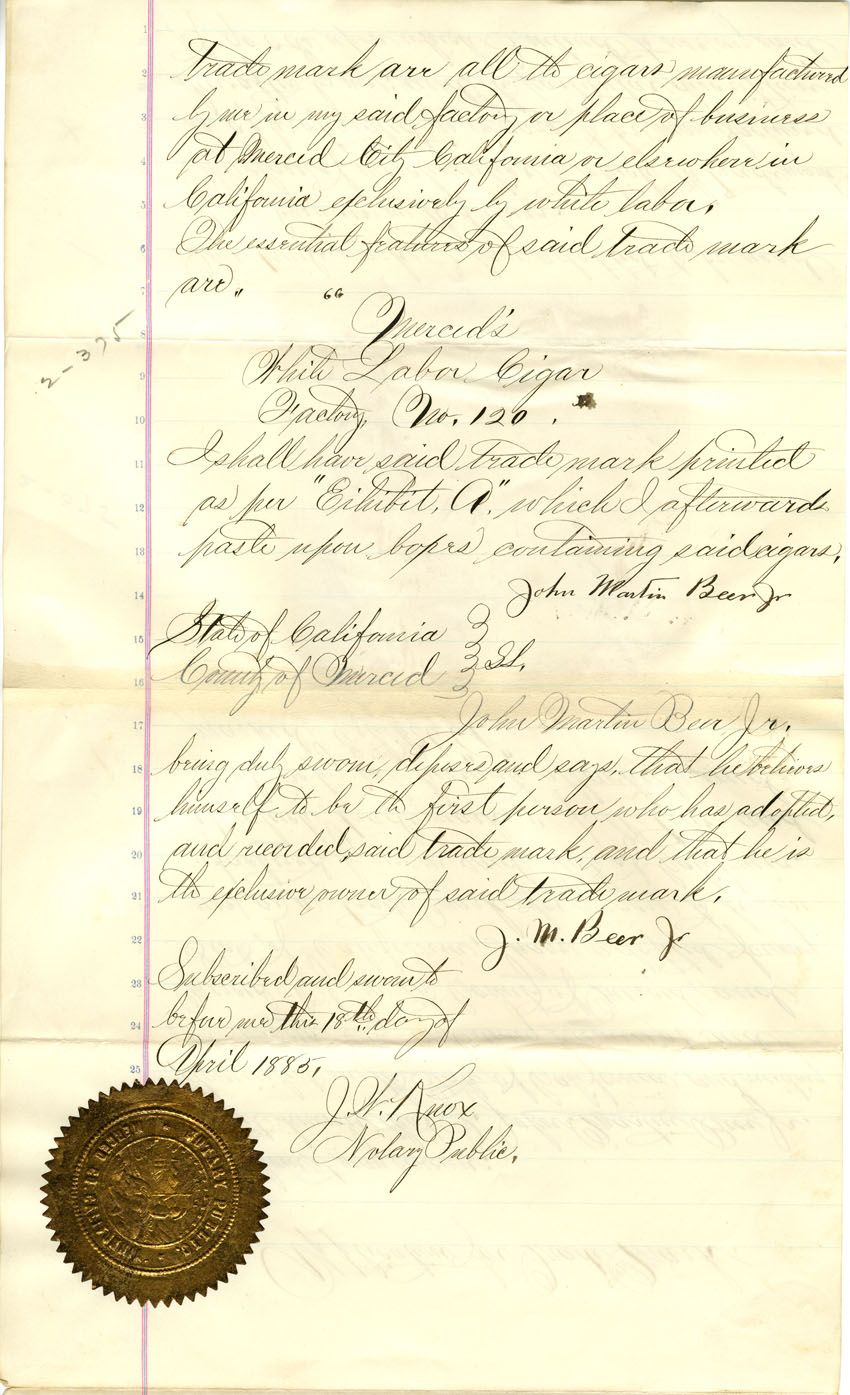 trade mark are all the cigars manufactured
by me in my said factory or place of business
at Merced City California or elsewhere in
California exclusively by white labor.
The essential features of said trade mark
are, "
Merced's
White Labor Cigar
Factory, No. 120."
I shall have said trade mark printed
as per "Exhibit, A", which I afterwards
paste upon boxes containing said cigars.
John Martin Beer Jr
State of California
County of Merced } SS.
John Martin Beer Jr.
being duly sworn, deposes and says, that he believes
himself to be the first person who has adopted,
and recorded, said trade mark, and that he is
the exclusive owner of said trade mark.
J. M. Beer Jr
Subscribed and sworn to
before me this 18th day of
April 1885.
J. W. Knox
Notary Public.
2-375
1
2
3
4
5
6
7
8
9
10
11
12
13
14
15
16
17
18
19
20
21
22
23
24
25
NOTARY PUBLIC